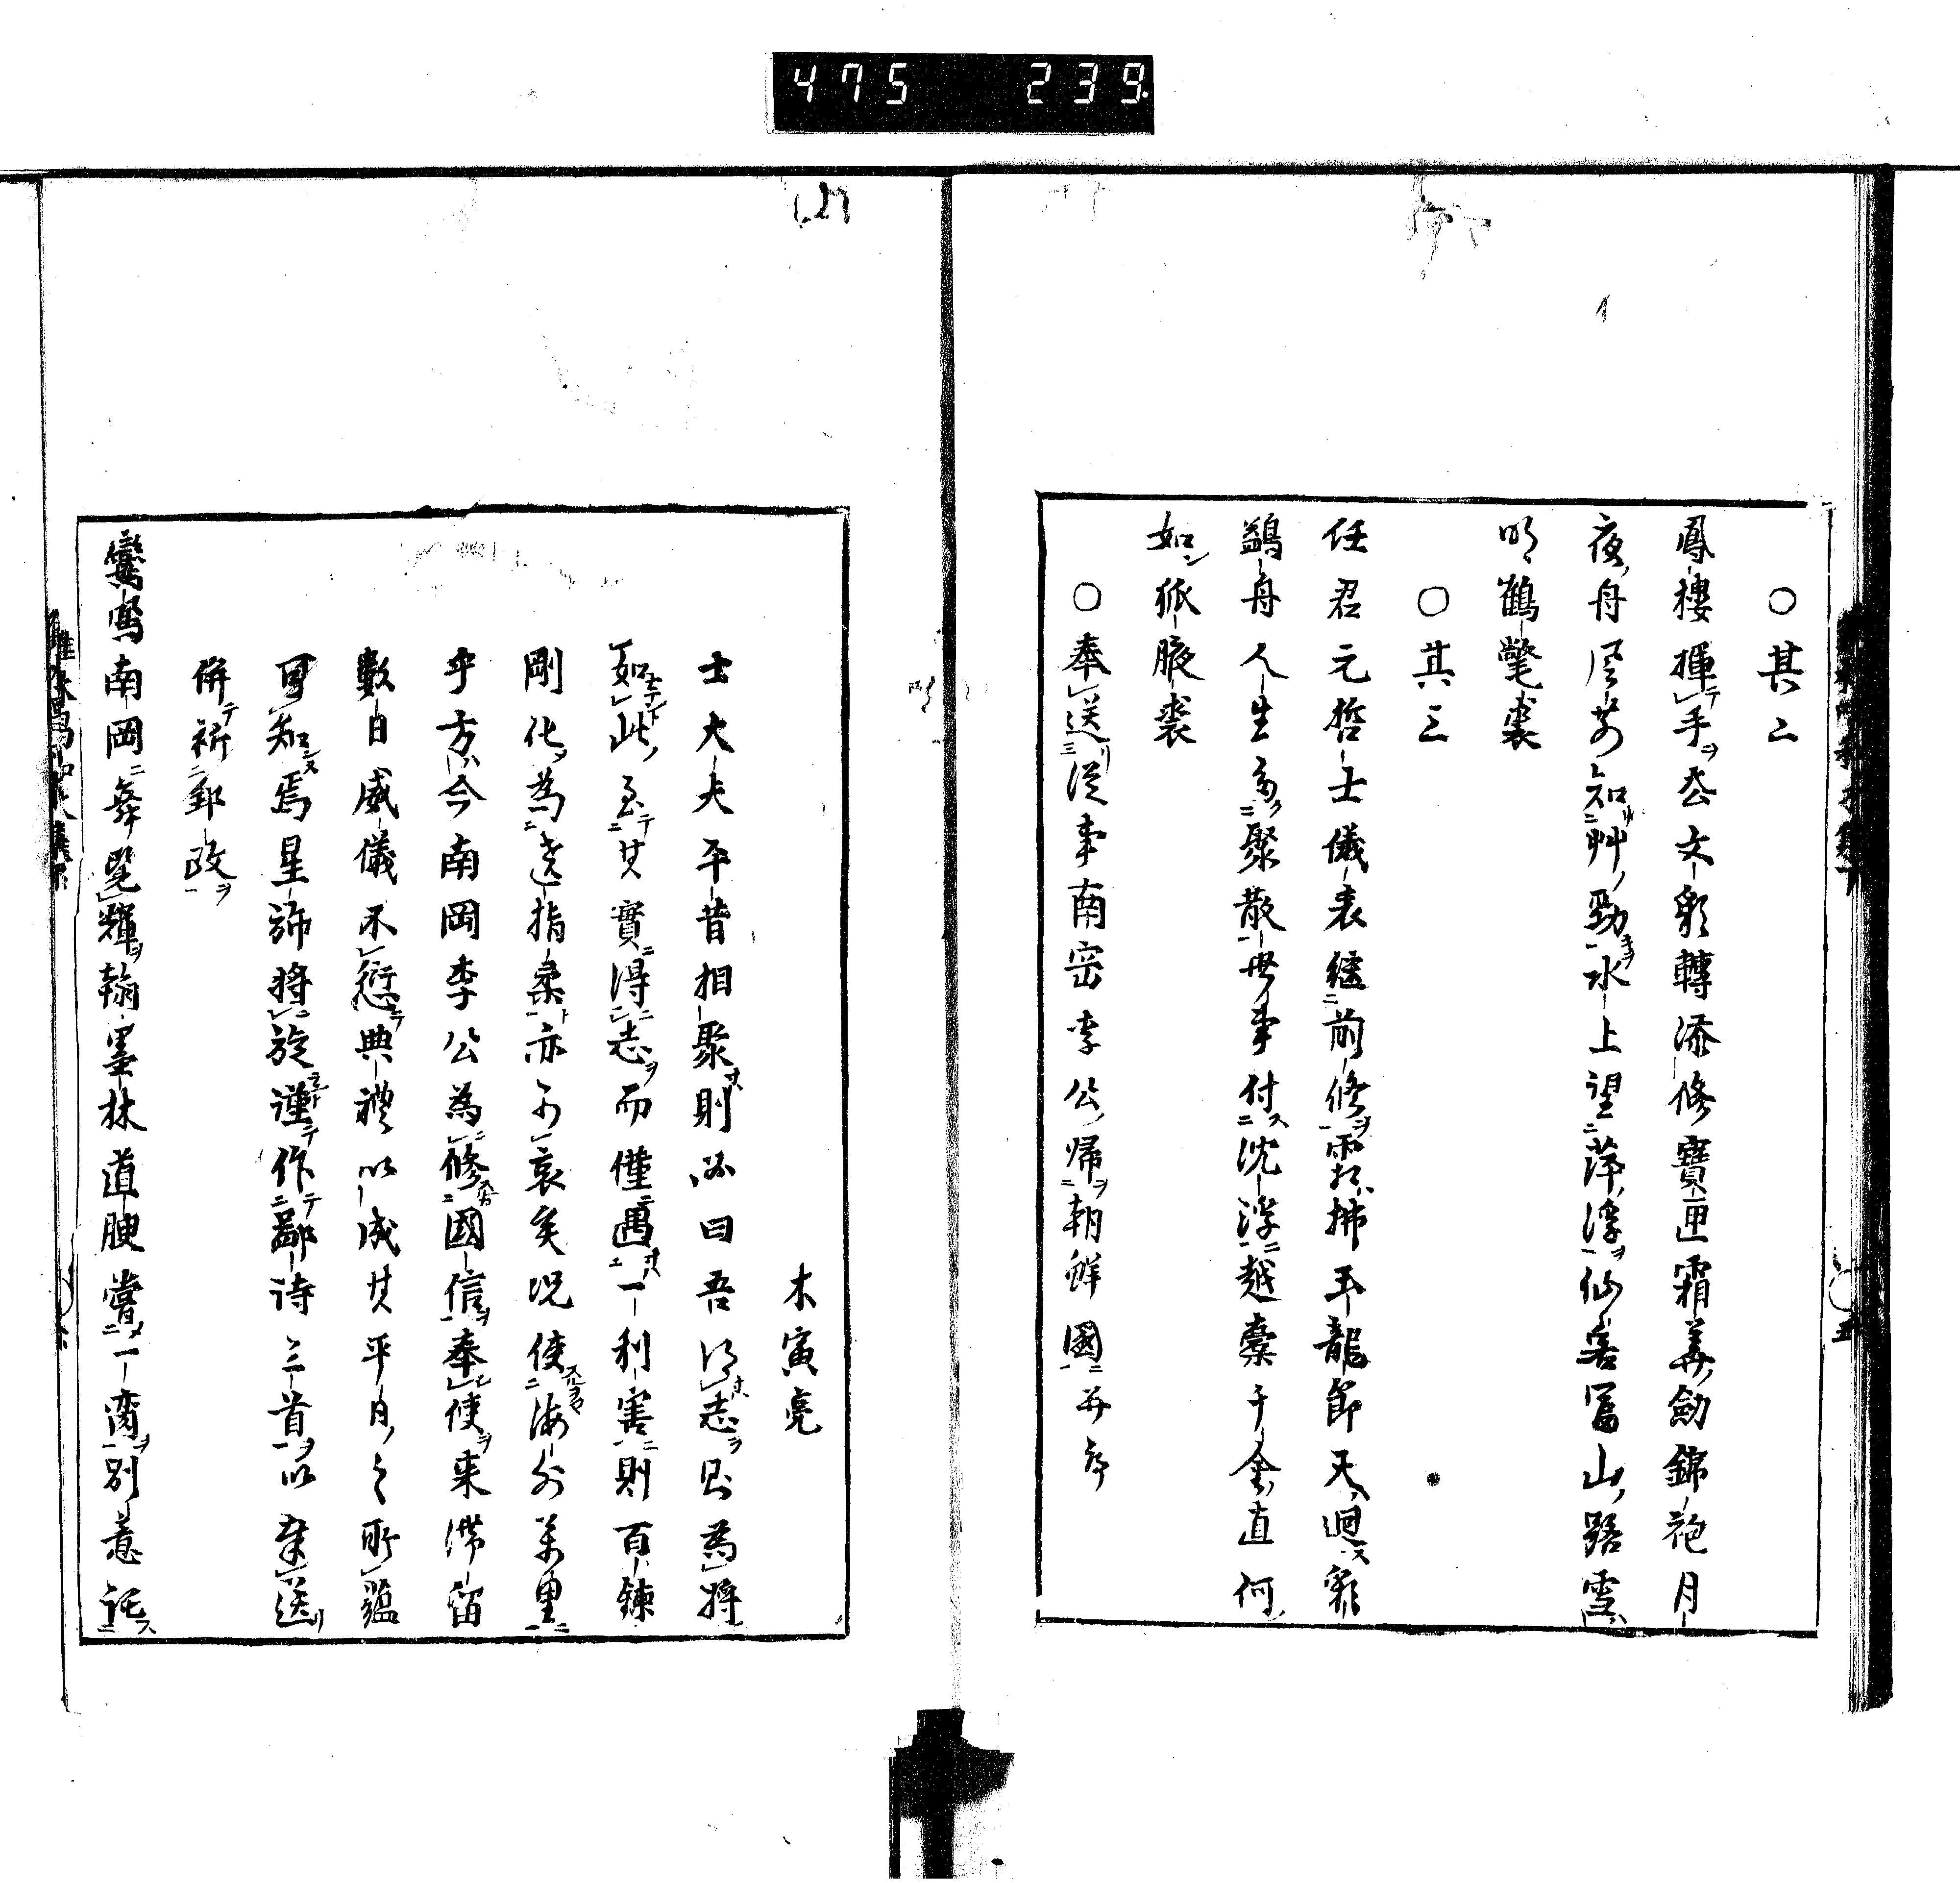 475 239
○其二
鳳樓揮手大文彩轉添修寶匣霜華劒錦袍月
夜舟風前知艸勁水上望萍浮仙客冨山路雪
明鶴氅裘
○其三
任君元哲士儀表繼前修霓拂玉龍節天迴彩
鷁舟人生多聚散世事付沈浮越槖千金直何
如狐腋裘
○奉送從事南岡李公歸朝鮮國并序
木寅亮
士大夫平昔相聚則必曰吾得志則為將
如此至其實得志而僅遇一利害則百鍊
剛化為遶指柔亦可哀矣況使海外萬里
乎方今南岡李公為修國信奉使来滞留
數日威儀不愆典禮以成其平日之所蘊
可知焉星旆將旋謹作鄙詩三首以奉送
併祈郢政
鸞鳳南岡舞覽輝翰墨林道腴嘗一臠別意託